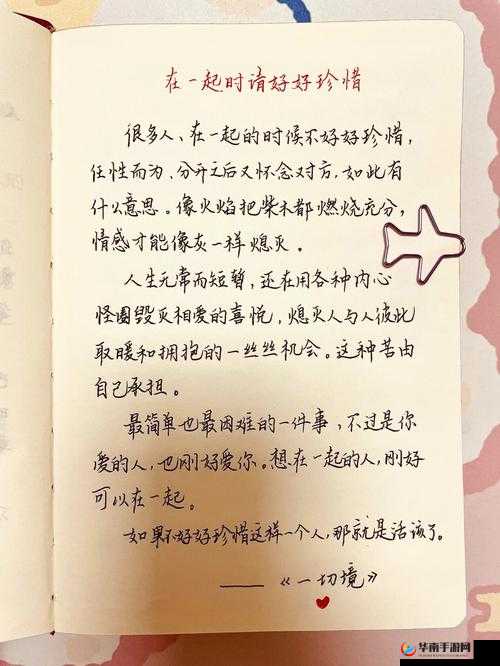 在一起时请好好珍惜
很多人、在一起的时候不好好珍惜，
任性而为、分开之后又怀念对方，如此有
什么意思。像火焰把柴木都燃烧充分，
情感才能像灰一样熄灭。
人生无常而短暂，还在用各种内心
怪圈毁灭相爱的喜悦，熄灭人与人彼此
取暖和拥抱的一丝丝机会。这种苦由
自己承担。
最简单也最困难的一件事，不过是你
爱的人，也刚好爱你。想在一起的人，刚好
可以在一起。
如果不好好珍惜这样一个人，那就是活该了。
——《一切境》
华南手游网